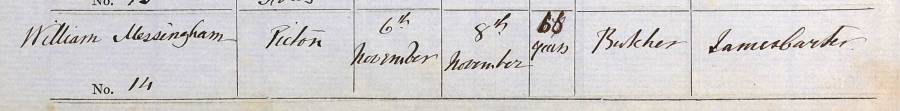 William Messingham Picton 6th November 8th November 66 years Butcher James Carter
No. 14